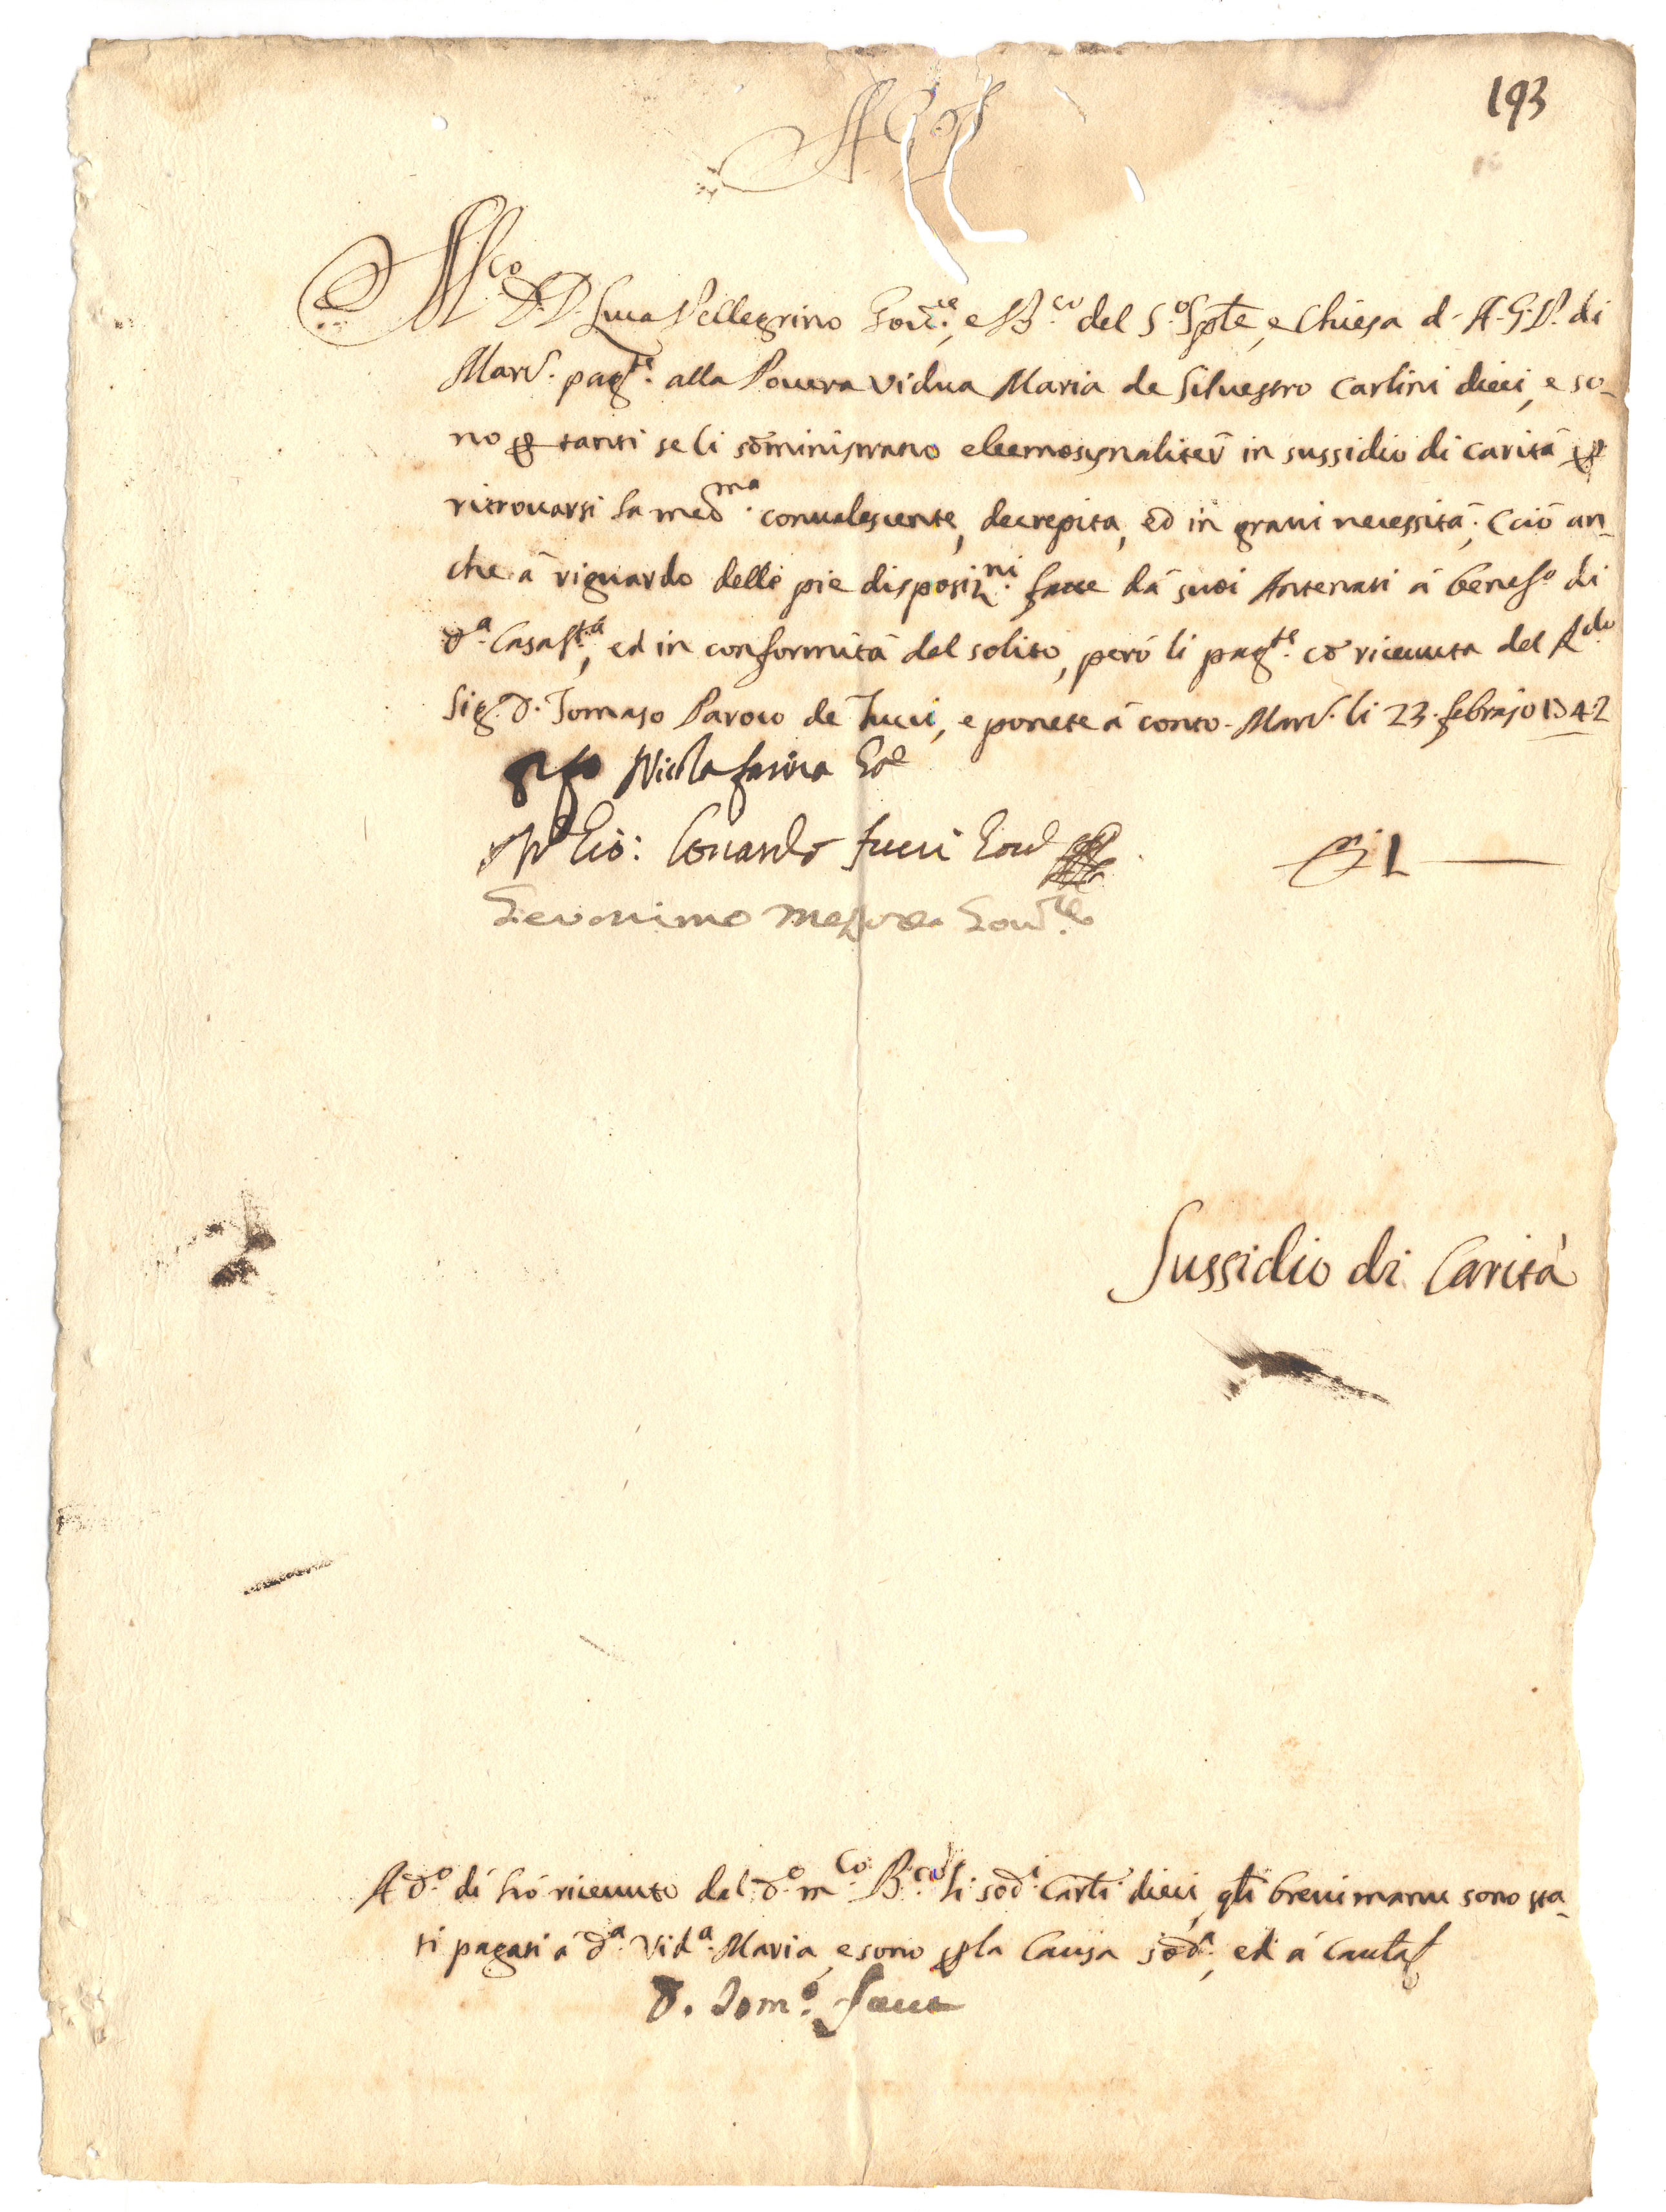 193
A G P
M.co D.D. Luca Pellegrino Gov.re, e B.co del S.o Spte, e Chiesa d- A.G.P. di
Mard. pag.te alla Pouera Vidua Maria de Siluestro Carlini dieci, e so-
no p tanti se li somministrano eleemosynaliter in sussidio di carità p
ritrouarsi la med.ma conualescente, decrepita, ed in graui necessità; E ciò an-
che à riguardo delle pie disposiz.ni fatte dà suoi Antenati à benef.o di
d.a Casa S.ta, ed in conformità del solito, però li pag.te cō riceuuta del R.do
Sig. D. Tomaso Paroco de Fucci, e ponete à conto. Mard. li 23. febrajo 1742
Nicola farina Go.e
Gio: Lonardo fucci Gou
1 —
Geronimo Gou.re
Sussidio di Carità
A d.o dì hò riceuuto dal d.o m.co B.co li sod.i Carli dieci, qli breui manu sono sta-
ti pagati à d.a Vid.a Maria, e sono p la Causa sod.a, ed à Cautel
D. Tom.o Fucci